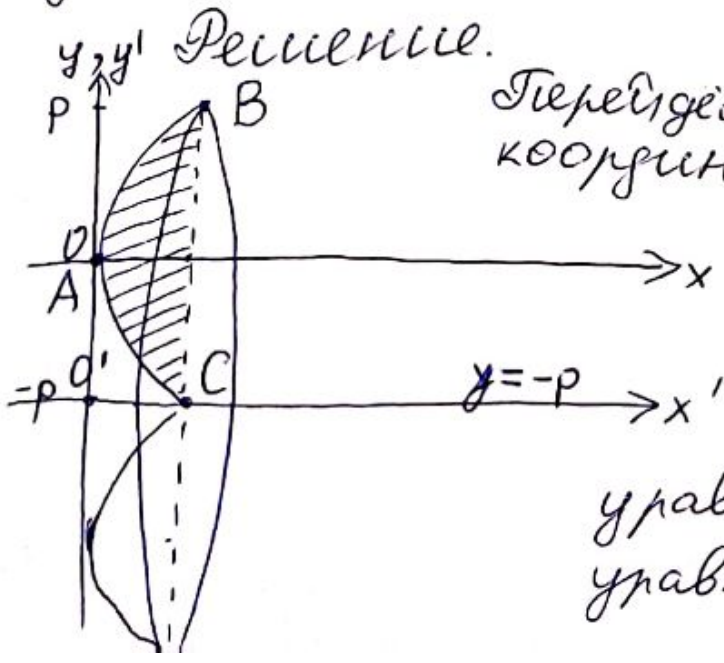 Решение.
y, y'
P
B
Перейдё
координ
O
A
x
-p
O'
C
y=-p
x'
урав
урав